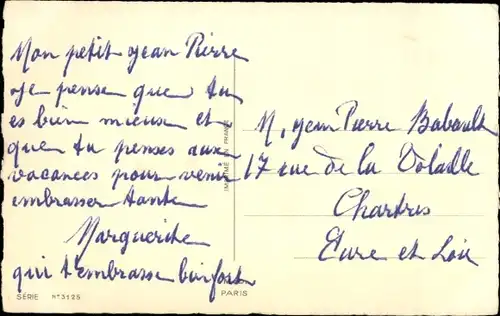 Mon petit Jean Pierre
Je pense que tu
es bien mieux et
que tu penses aux
vacances pour venir
embrasser tante
Marguerite
qui t'embrasse bien fort
SÉRIE N° 3125
IMPRIMÉ EN FRANCE
PARIS
M. Jean Pierre Babault
17 rue de la Volaille
Chartres
Eure et Loir